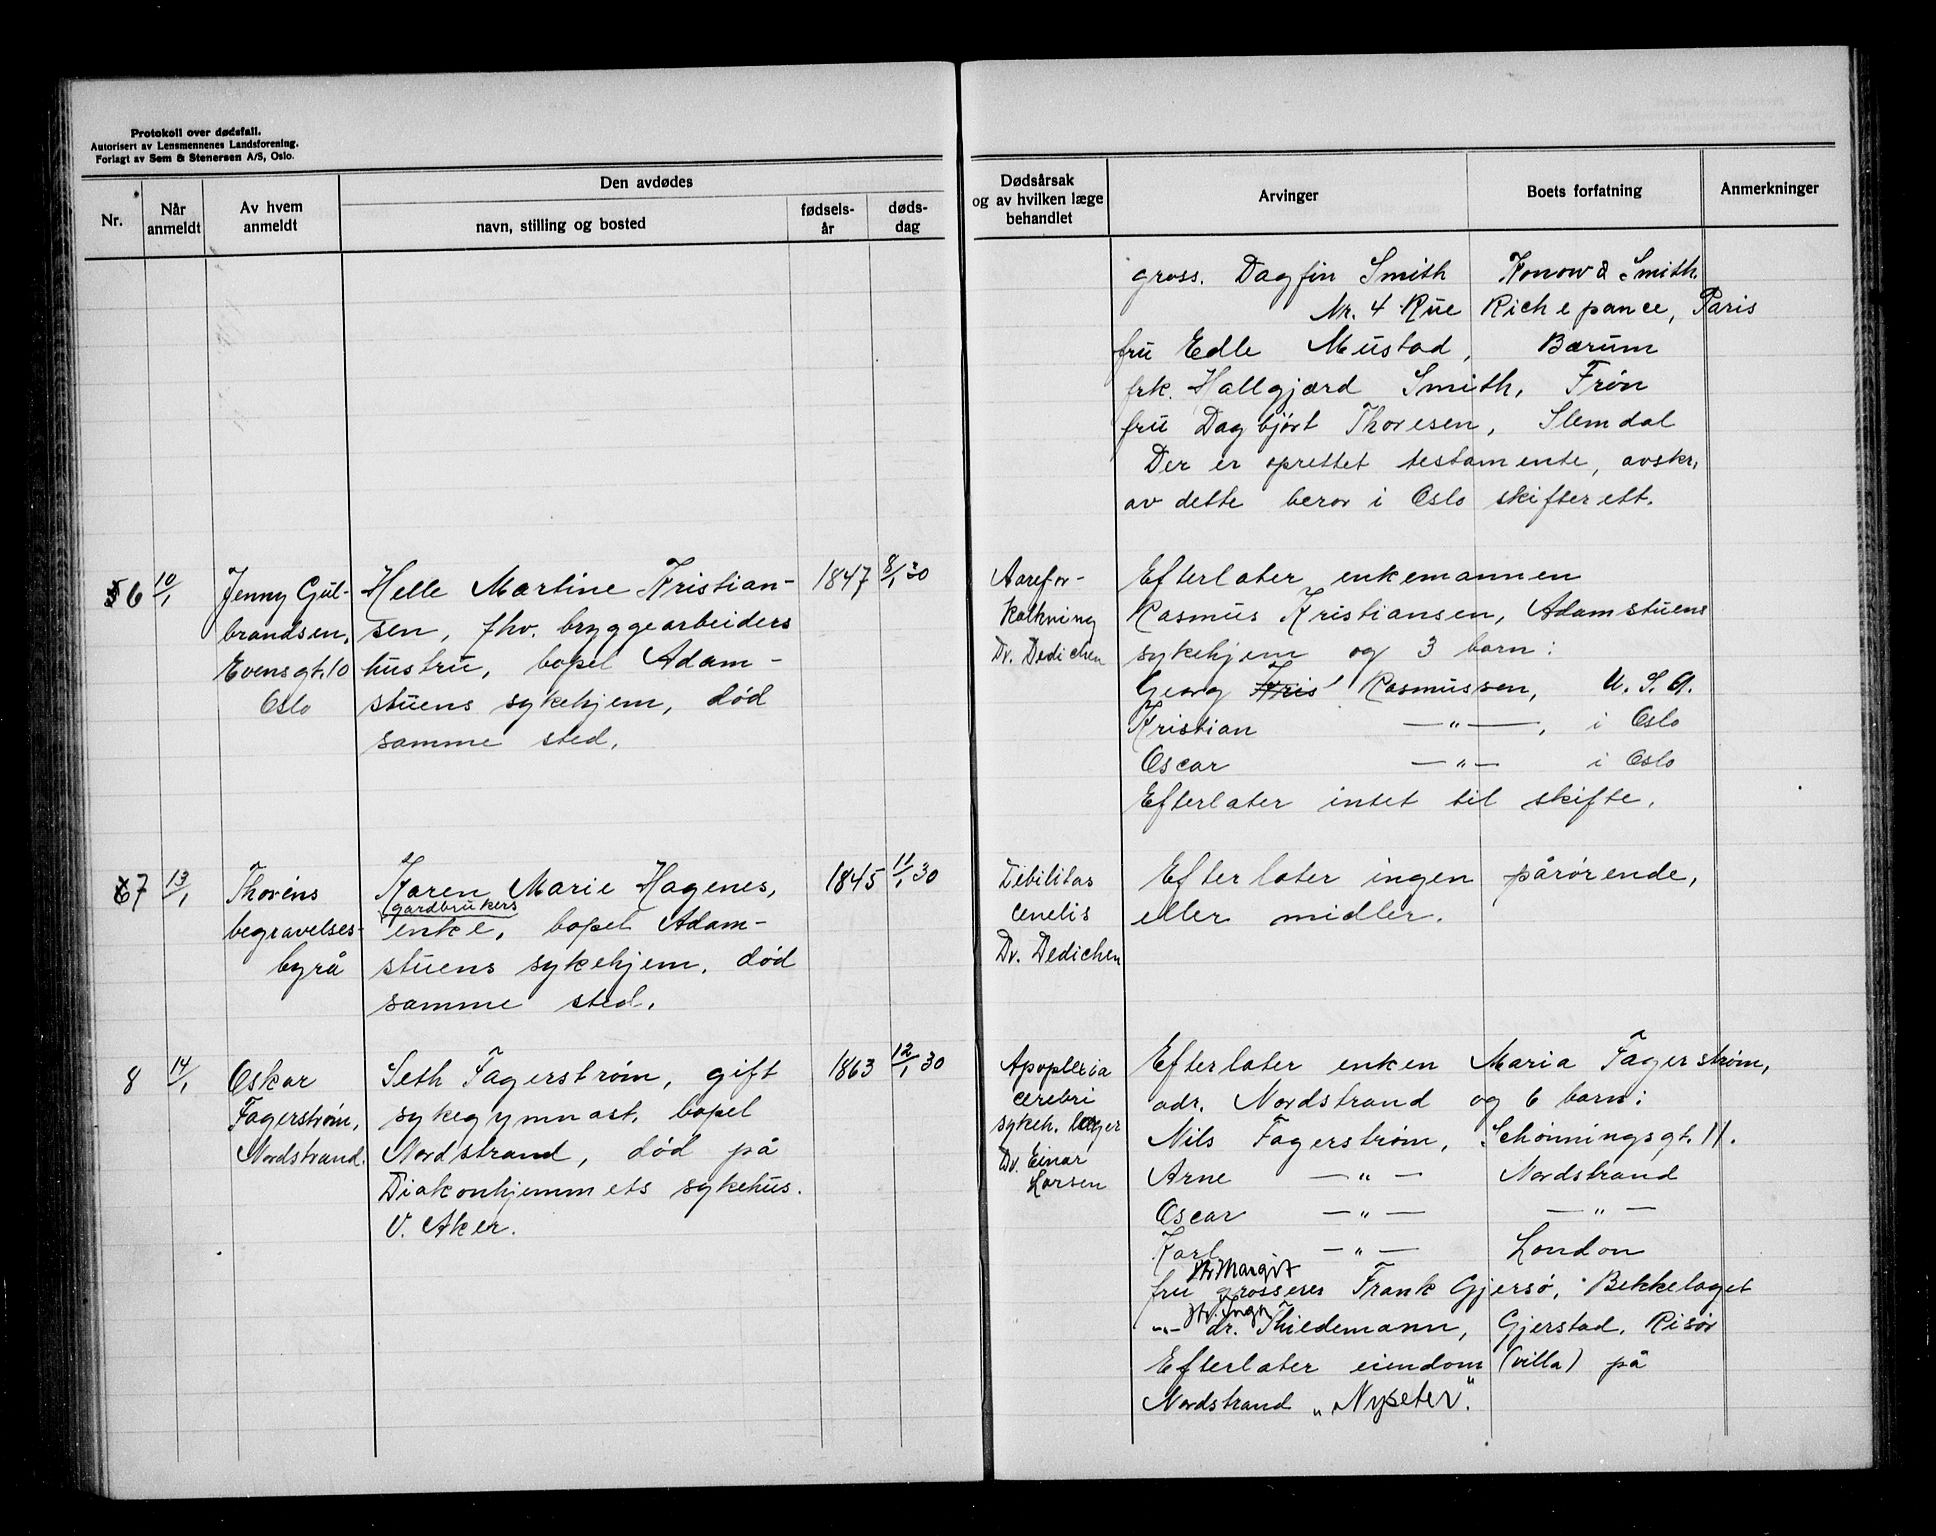 Protokoll over dødsfall.
Autorisert av Lensmennenes Landsforening.
Forlagt av Sem & Stenersen A/S, Oslo.
Nr.
Når anmeldt
Av hvem anmeldt
Den avdødes
navn, stilling og bosted
fødsels-år
døds-dag
Dødsårsak og av hvilken læge behandlet
Arvinger
Boets forfatning
Anmerkninger
gross. Dagfin Smith Konow & Smith
Nr. 4 Rue Richepance, Paris
fru Edle Mustad, Bærum
frk. Hallgjærd Smith, Frøn
fru Dagbjørt Thoresen, Slemdal
Der er oprettet testamente, avskr.
av dette beror i Oslo skifterett.
6 10/1
Jenny Gul-
brandsen,
Evensgt. 10
Oslo
Helle Martine Kristian-
sen, fhv. bryggearbeiders
hustru, bopel Adam-
stuens sykehjem, død
samme sted.
1847 8/1 30
Aarefor-
kalkning
Dr. Dedichen
Efterlater enkemannen
Rasmus Kristiansen, Adamstuens
sykehjem og 3 barn:
Georg Kris Rasmussen, U.S.A.
Kristian —"—, i Oslo
Oscar —"— i Oslo
Efterlater intet til skifte.
7 13/1
Thoréns
begravelses-
byrå
Karen Marie Hagenes,
gardbrukers
enke, bopel Adam-
stuens sykehjem, død
samme sted.
1845 11/1 30
Debilitas
cenelis
Dr. Dedichen
Efterlater ingen pårørende,
eller midler.
8 14/1
Oskar
Fagerstrøm,
Nordstrand.
Seth Fagerstrøm, gift
sykegymnast, bopel
Nordstrand, død på
Diakonhjemmets sykehus.
V. Aker.
1863 12/1 30
Apoplexia
cerebri
sykeh. læger
Dr. Einar
Larsen
Efterlater enken Maria Fagerstrøm,
adr. Nordstrand og 6 barn:
Nils Fagerstrøm, Schønningsgt. 11.
Arne —"— Nordstrand
Oscar —"— —"—
Karl —"— London
Margit
fru grosserer Frank Gjersø, Bekkelaget
-"- dr. Thiedemann, Gjerstad, Risør
Efterlater eiendom (villa) på
Nordstrand „Nyseter".